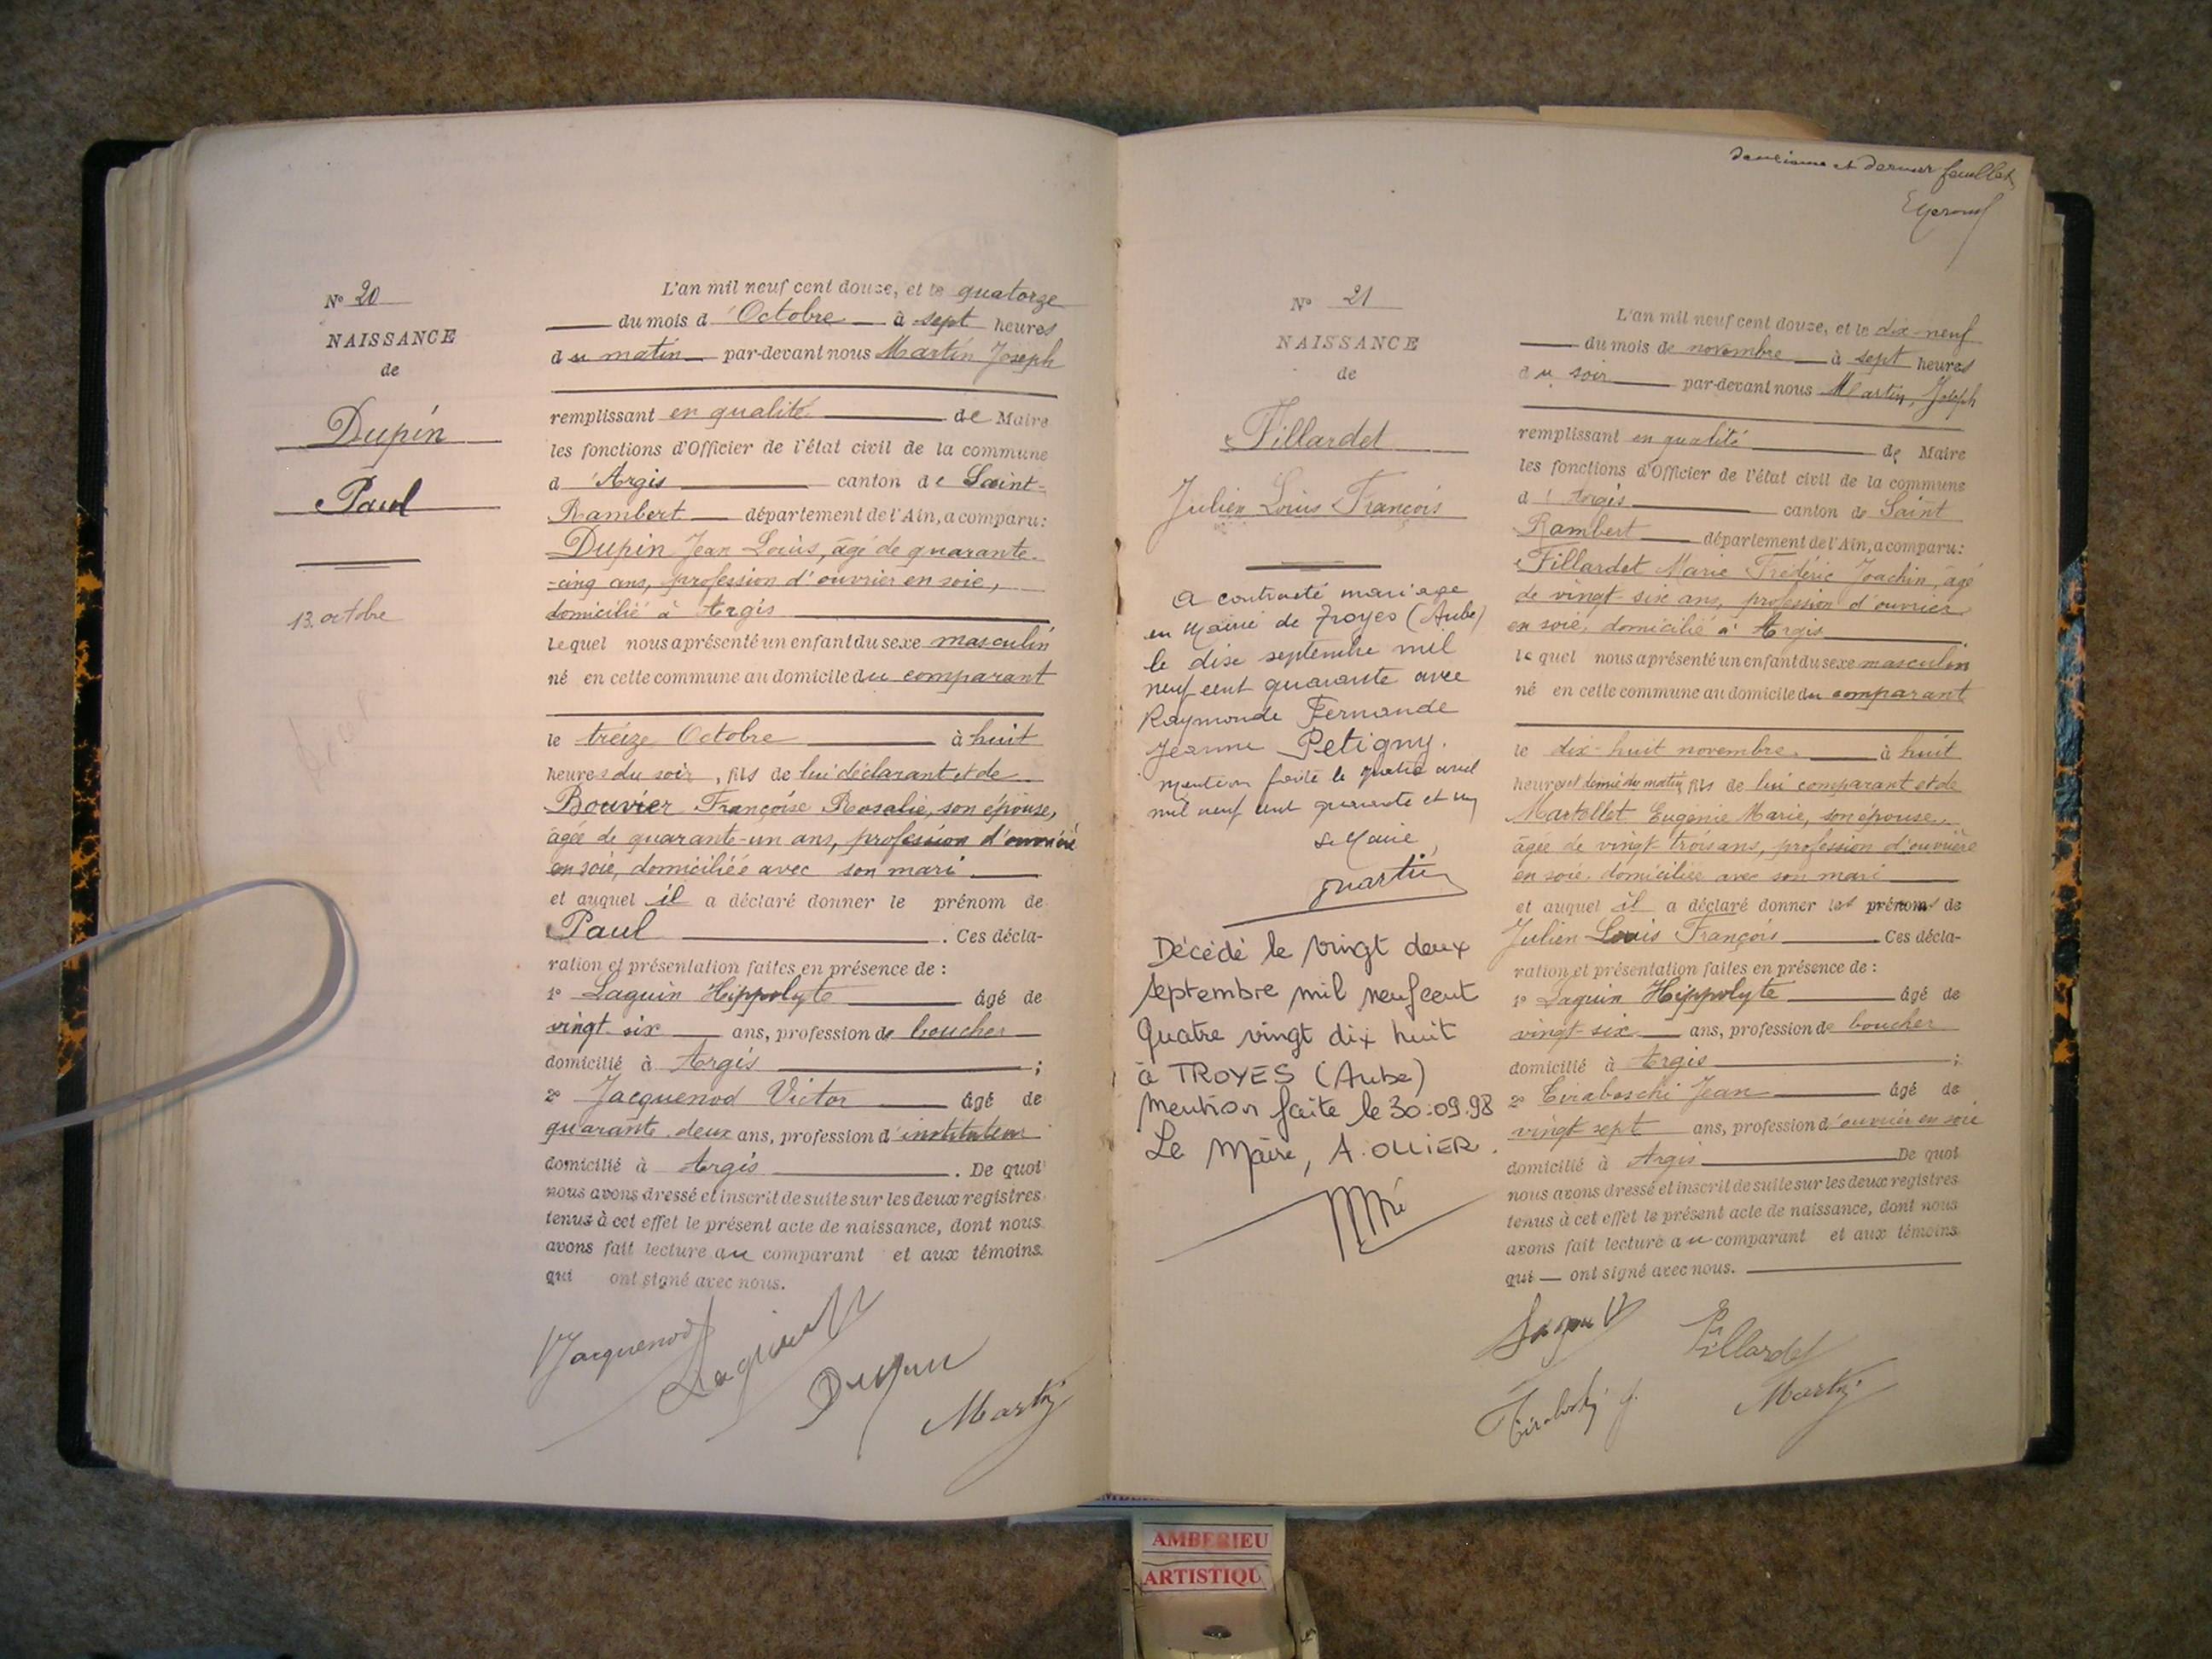 N° 20
NAISSANCE
de
Dupin
Paul
13 octobre
L'an mil neuf cent douze, et le quatorze
du mois d'Octobre à sept heures
du matin par-devant nous Martin Joseph
remplissant en qualité de Maire
les fonctions d'Officier de l'état civil de la commune
d'Argis canton de Saint-
Rambert département de l'Ain, a comparu:
Dupin Jean Louis, âgé de quarante-
-cinq ans, profession d'ouvrier en soie,
domicilié à Argis
lequel nous a présenté un enfant du sexe masculin
né en cette commune au domicile du comparant
le treize Octobre à huit
heures du soir, fils de lui déclarant et de
Bouvier Françoise Rosalie, son épouse,
âgée de quarante-un ans, profession d'ouvrière
en soie, domiciliée avec son mari
et auquel il a déclaré donner le prénom de
Paul. Ces décla-
ration et présentation faites en présence de :
1° Laguin Hippolyte âgé de
vingt-six ans, profession de boucher
domicilié à Argis ;
2° Jacquenod Victor âgé de
quarante-deux ans, profession d'instituteur
domicilié à Argis. De quoi
nous avons dressé et inscrit de suite sur les deux registres
tenus à cet effet le présent acte de naissance, dont nous
avons fait lecture au comparant et aux témoins
qui ont signé avec nous.
V Jacquenod Laguin Dupin Martin
deuxième et dernier feuillet
N° 21
NAISSANCE
de
Fillardet
Julien Louis François
A contracté mariage
en Mairie de Troyes (Aube)
le dix septembre mil
neuf cent quarante avec
Raymonde Fernande
Jeanne Petigny.
Mention faite le quatre avril
mil neuf cent quarante et un
Le Maire,
Martin
Décédé le vingt deux
septembre mil neuf cent
Quatre vingt dix huit
à TROYES (Aube)
Mention faite le 30.09.98
Le Maire, A. OLLIER.
L'an mil neuf cent douze, et le dix-neuf
du mois de novembre à sept heures
du soir par-devant nous Martin, Joseph
remplissant en qualité de Maire
les fonctions d'Officier de l'état civil de la commune
d'Argis canton de Saint
Rambert département de l'Ain, a comparu:
Fillardet Marie Frédéric Joachin, âgé
de vingt-six ans, profession d'ouvrier
en soie, domicilié à Argis
lequel nous a présenté un enfant du sexe masculin
né en cette commune au domicile du comparant
le dix-huit novembre, à huit
heures et demie du matin, fils de lui comparant et de
Martellet Eugénie Marie, son épouse,
âgée de vingt-trois ans, profession d'ouvrière
en soie, domiciliée avec son mari
et auquel il a déclaré donner les prénoms de
Julien Louis François Ces décla-
ration et présentation faites en présence de :
1° Laguin Hippolyte âgé de
vingt-six ans, profession de boucher
domicilié à Argis ;
2° Tiraboschi Jean âgé de
vingt sept ans, profession d'ouvrier en soie
domicilié à Argis De quoi
nous avons dressé et inscrit de suite sur les deux registres
tenus à cet effet le présent acte de naissance, dont nous
avons fait lecture au comparant et aux témoins
qui ont signé avec nous.
Laguin Fillardet
Tiraboschi J. Martin
AMBERIEU
ARTISTIQU